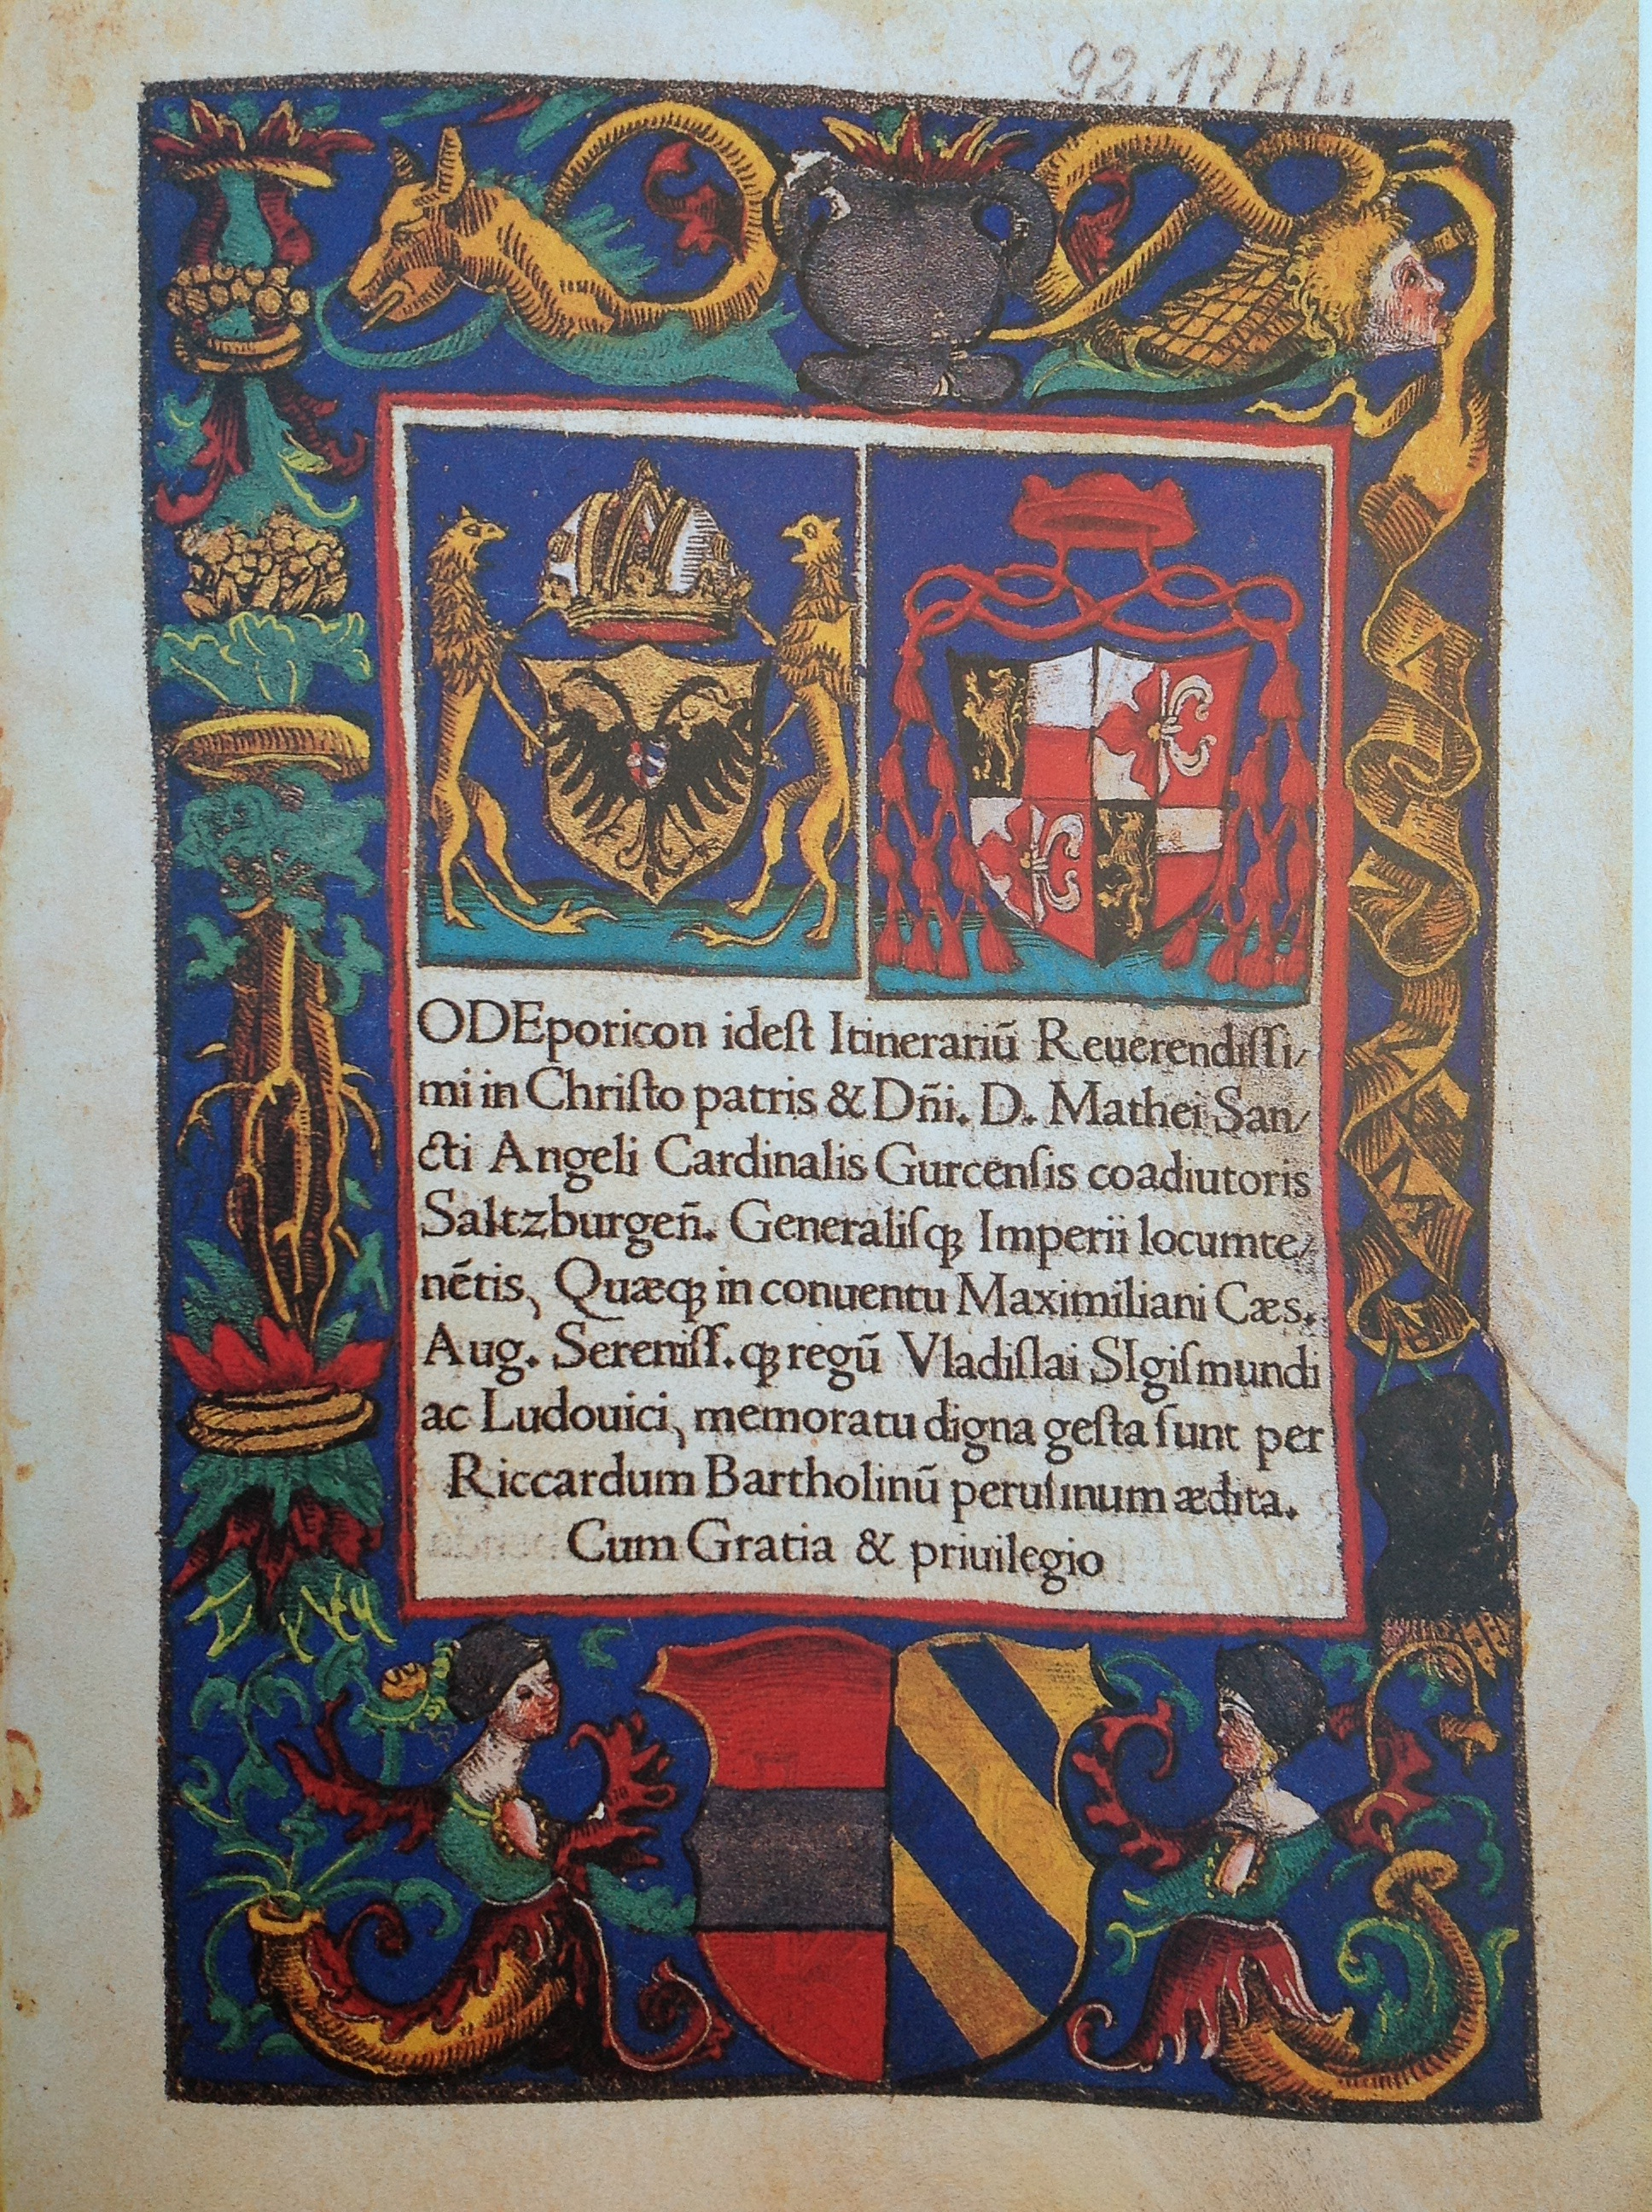 92.17 Hü
ODEporicon ideſt Itinerariū Reuerendiſſi⸗
mi in Chriſto patris & Dn̄i. D. Mathei San⸗
cti Angeli Cardinalis Gurcenſis coadiutoris
Saltzburgen̄. Generaliſqꝫ Imperii locumte⸗
nētis, Quæqꝫ in conuentu Maximiliani Cæs.
Aug. Sereniſſ.qꝫ regū Vladiſlai SIgiſmundi
ac Ludouici, memoratu digna geſta ſunt per
Riccardum Bartholinū peruſinum ædita.
Cum Gratia & priuilegio